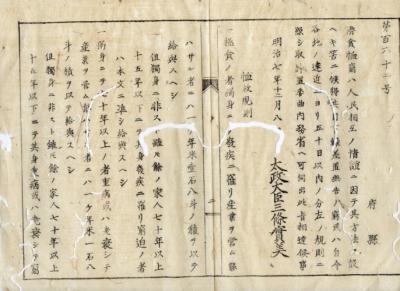 第百六十二号
府縣
濟貧恤窮ハ人民相互ノ情誼ニ因テ其方法ヲ設
ヘキ筈ニ候得共目下難差置無告ノ窮民ハ自今
各地ノ遠近ニヨリ五十日以内ノ分左ノ規則ニ
照シ取計置委曲内務省ヘ可伺出此旨相達候事
明治七年十二月八
太政大臣三條實美
恤救規則
一極貧ノ者獨身ニテ廢疾ニ罹リ産業ヲ營ム能
ハサル者ニハ一ケ年米壹石八斗ノ積ヲ以テ
給與スヘシ
但獨身ニ非スト雖モ餘ノ家人七十年以上
十五年以下ニテ其身廢疾ニ罹リ窮迫ノ者
ハ本文ニ準シ給與スヘシ
一同獨身ニテ七十年以上ノ者重病或ハ老衰シテ
産業ヲ營ム能ハサル者ニハ一ケ年米一石八
斗ノ積ヲ以テ給與スヘシ
但獨身ニ非スト雖モ餘ノ家人七十年以上
十五年以下ニテ其身重病或ハ老衰シテ窮